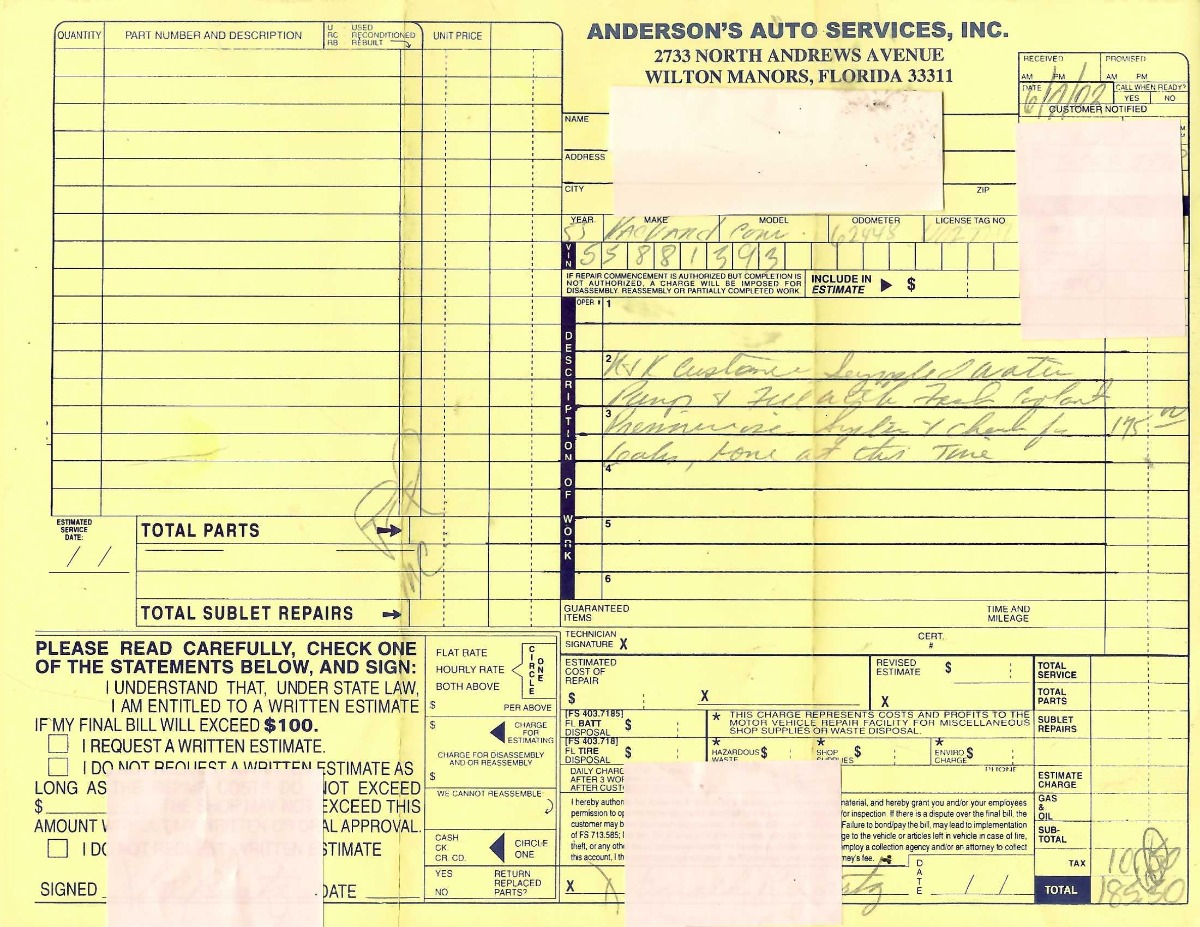 ANDERSON'S AUTO SERVICES, INC.
2733 NORTH ANDREWS AVENUE
WILTON MANORS, FLORIDA 33311
QUANTITY PART NUMBER AND DESCRIPTION U USED RC RECONDITIONED RB REBUILT UNIT PRICE
RECEIVED PROMISED
AM PM AM PM
DATE CALL WHEN READY?
YES NO
CUSTOMER NOTIFIED
NAME
ADDRESS
CITY ZIP
YEAR MAKE MODEL ODOMETER LICENSE TAG NO
55 Packard Conv. 62448
VIN 55881393
IF REPAIR COMMENCEMENT IS AUTHORIZED BUT COMPLETION IS
NOT AUTHORIZED, A CHARGE WILL BE IMPOSED FOR
DISASSEMBLY REASSEMBLY OR PARTIALLY COMPLETED WORK
INCLUDE IN
ESTIMATE $
OPER #
DESCRIPTION OF WORK
1
2 R+R Customer Supplied Water
Pump & Fill with Fresh Coolant
3 Pressurize System & Check for 175.00
Leaks, None at this Time
4
5
6
ESTIMATED
SERVICE
DATE:
/ /
TOTAL PARTS
TOTAL SUBLET REPAIRS
MC
GUARANTEED
ITEMS
TIME AND
MILEAGE
TECHNICIAN
SIGNATURE X
CERT.
#
PLEASE READ CAREFULLY, CHECK ONE
OF THE STATEMENTS BELOW, AND SIGN:
I UNDERSTAND THAT, UNDER STATE LAW,
I AM ENTITLED TO A WRITTEN ESTIMATE
IF MY FINAL BILL WILL EXCEED $100.
I REQUEST A WRITTEN ESTIMATE.
I DO NOT REQUEST A WRITTEN ESTIMATE AS
LONG AS THE REPAIR COSTS DO NOT EXCEED
$ THE SHOP MAY NOT EXCEED THIS
AMOUNT WITHOUT MY WRITTEN OR ORAL APPROVAL.
I DO NOT WANT A WRITTEN ESTIMATE
SIGNED DATE
FLAT RATE
HOURLY RATE
BOTH ABOVE
CIRCLE ONE
$ PER ABOVE
$ CHARGE
FOR
ESTIMATING
CHARGE FOR DISASSEMBLY
AND OR REASSEMBLY
$
WE CANNOT REASSEMBLE:
CASH
CK
CR. CD.
CIRCLE
ONE
YES
NO
RETURN
REPLACED
PARTS?
ESTIMATED
COST OF
REPAIR
$ X
REVISED
ESTIMATE $
X
[FS 403.7185]
FL BATT
DISPOSAL $
* THIS CHARGE REPRESENTS COSTS AND PROFITS TO THE
MOTOR VEHICLE REPAIR FACILITY FOR MISCELLANEOUS
SHOP SUPPLIES OR WASTE DISPOSAL.
[FS 403.718]
FL TIRE
DISPOSAL $
* HAZARDOUS
WASTE $
* SHOP
SUPPLIES $
* ENVIRO
CHARGE $
DAILY CHARG
AFTER 3 WOR
AFTER CUST
PHONE
I hereby author material, and hereby grant you and/or your employees
permission to op for inspection. If there is a dispute over the final bill, the
customer may b Failure to bond/pay the bill, may lead to implementation
of FS 713.585; ge to the vehicle or articles left in vehicle in case of fire,
theft, or any othe employ a collection agency and/or an attorney to collect
this account, I th ney's fee.
X
DATE / /
TOTAL
SERVICE
TOTAL
PARTS
SUBLET
REPAIRS
ESTIMATE
CHARGE
GAS
&
OIL
SUB-
TOTAL
TAX 10.50
TOTAL 185.50